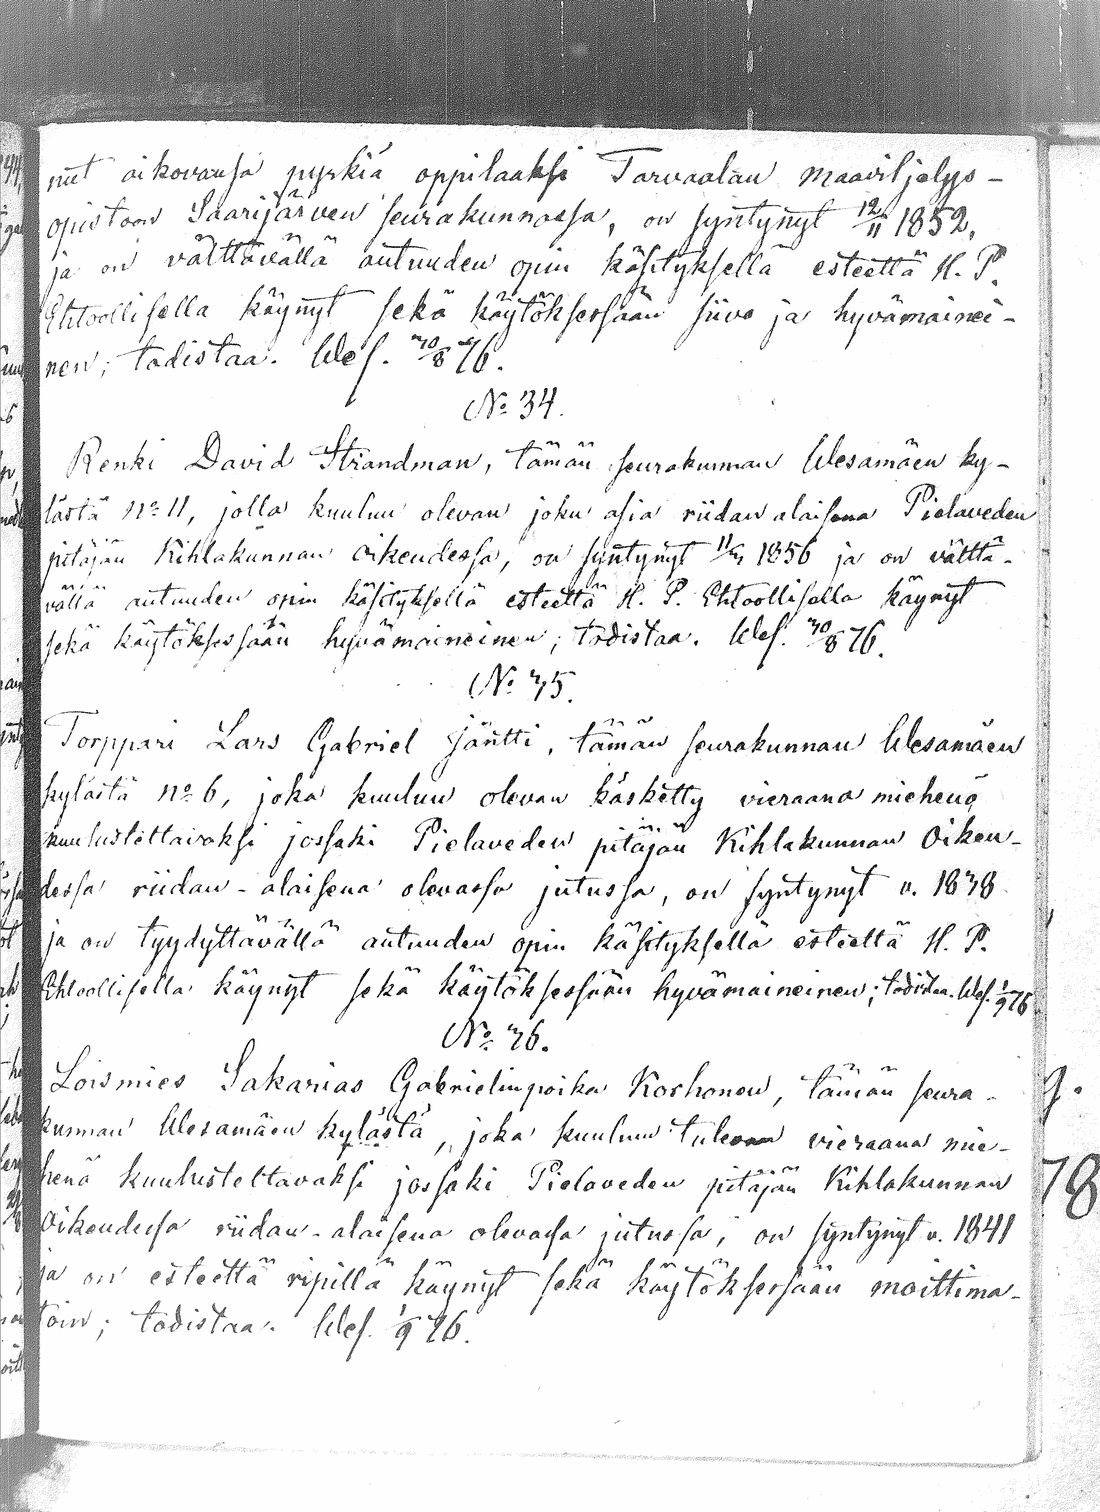 nut aikovansa pyrkiä oppilaaksi Tarvaalan maaviljelys-
opistoon Saarijärven seurakunnassa, on syntynyt 12/11 1852,
ja on välttävällä autuuden opin käsityksellä esteettä H. P.
Ehtoollisella käynyt sekä käytöksessään siivo ja hyvämainei-
nen; todistaa. Wes. 30/8 76.
No 34.
Renki David Strandman, tämän seurakunnan Wesamäen ky-
lästä no 11, jolla kuuluu olevan joku asia riidan alaisena Pielaveden
pitäjän Kihlakunnan oikeudessa, on syntynyt 1856 ja on vältt̄ä-
vällä autuuden opin käsityksellä esteettä H. P. Ehtoollisella käynyt
sekä käytöksessään hyvämaineinen; todistaa. Wes. 30/8 76.
No 35.
Torppari Lars Gabriel Jäntti, tämän seurakunnan Wesamäen
kylästä no 6, joka kuuluu olevan käsketty vieraana miehenä
kuulustettavaksi jossaki Pielaveden pitäjän Kihlakunnan Oikeu-
dessa riidan-alaisena olevassa jutussa, on syntynyt v. 1838
ja on tyydyttävällä autuuden opin käsityksellä esteettä H. P.
Ehtoollisella käynyt sekä käytöksessään hyvämaineinen; todistaa. Wes. 1/9 76
No 36.
Loismies Sakarias Gabrielinpoika Korhonen, tämän seura-
kunnan Wesamäen kylästä, joka kuuluu tulevan vieraana mie-
henä kuulustettavaksi jossaki Pielaveden pitäjän Kihlakunnan
Oikeudessa riidan-alaisena olevassa jutussa, on syntynyt v. 1841
ja on esteettä ripillä käynyt sekä käytöksessään moittima-
toin; todistaa. Wes. 1/9 76.